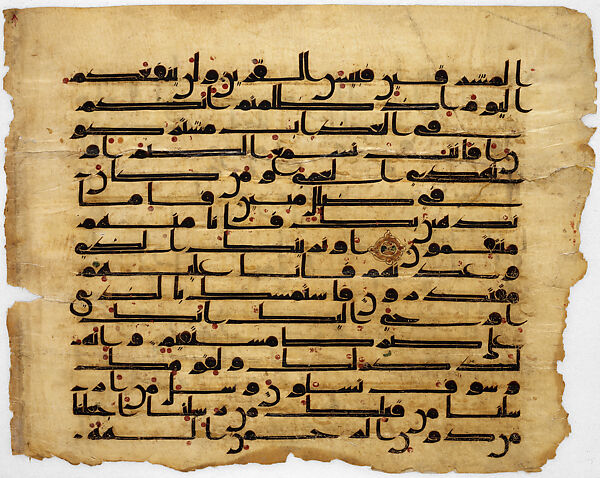 المشرقين فبئس القرين ولن ينفعكم
اليوم اذ ظلمتم انكم
في العذاب مشتركو
ن افانت تسمع الصم او
تهدي العمي ومن كان
في ضلل مبين فاما
نذهبن بك فانا منهم
منتقمون او نرينك الذي
وعدنهم فانا عليهم
مقتدرون فاستمسك بالذي
اوحي اليك انك
على صرط مستقيم وانه
لذكر لك ولقومك
وسوف تسلون وسل من ار
سلنا من قبلك من رسلنا اجعلنا
من دون الرحمن الهة